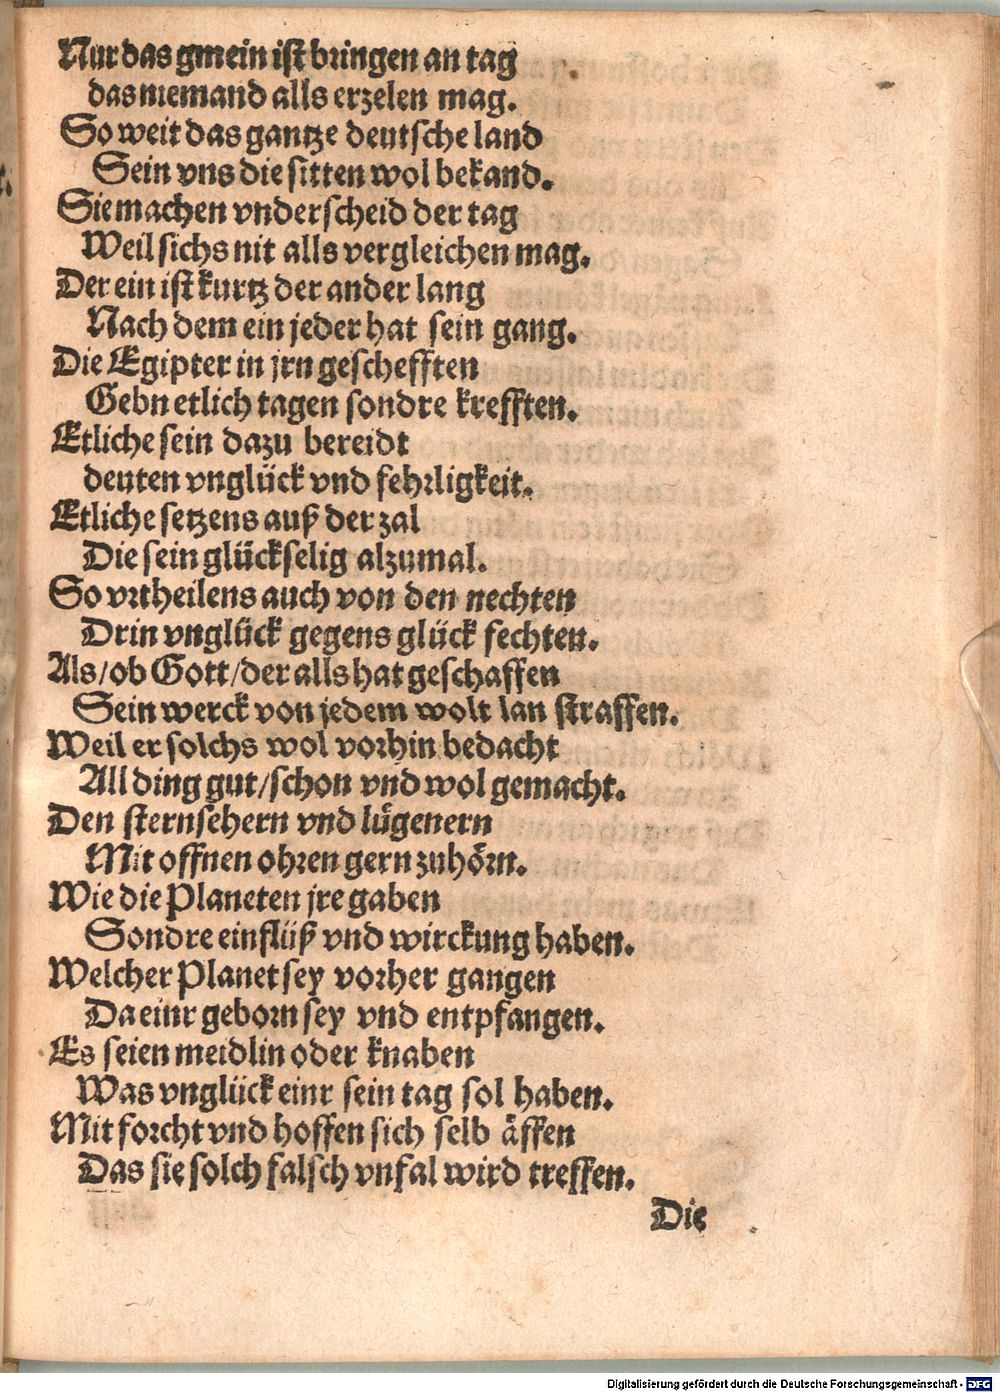 Nur das gmein ist bringen an tag
das niemand alls erzelen mag.
So weit das gantze deutsche land
Sein vns die sitten wol bekand.
Sie machen vnderscheid der tag
Weil sichs nit alls vergleichen mag.
Der ein ist kurtz der ander lang
Nach dem ein jeder hat sein gang.
Die Egipter in jrn geschefften
Gebn etlich tagen sondre krefften.
Etliche sein dazu bereidt
deuten vnglück vnd fehrligkeit.
Etliche setzens auß der zal
Die sein glückselig alzumal.
So vrtheilens auch von den nechten
Drin vnglück gegens glück fechten.
Als/ob Gott/der alls hat geschaffen
Sein werck von jedem wolt lan straffen.
Weil er solchs wol vorhin bedacht
All ding gut/schon vnd wol gemacht.
Den sternsehern vnd lügenern
Mit offnen ohren gern zuhörn.
Wie die Planeten jre gaben
Sondre einflüß vnd wirckung haben.
Welcher Planet sey vorher gangen
Da einr geborn sey vnd entpfangen.
Es seien meidlin oder knaben
Was vnglück einr sein tag sol haben.
Mit forcht vnd hoffen sich selb äffen
Das sie solch falsch vnfal wird treffen.
Die
Digitalisierung gefördert durch die Deutsche Forschungsgemeinschaft - DFG